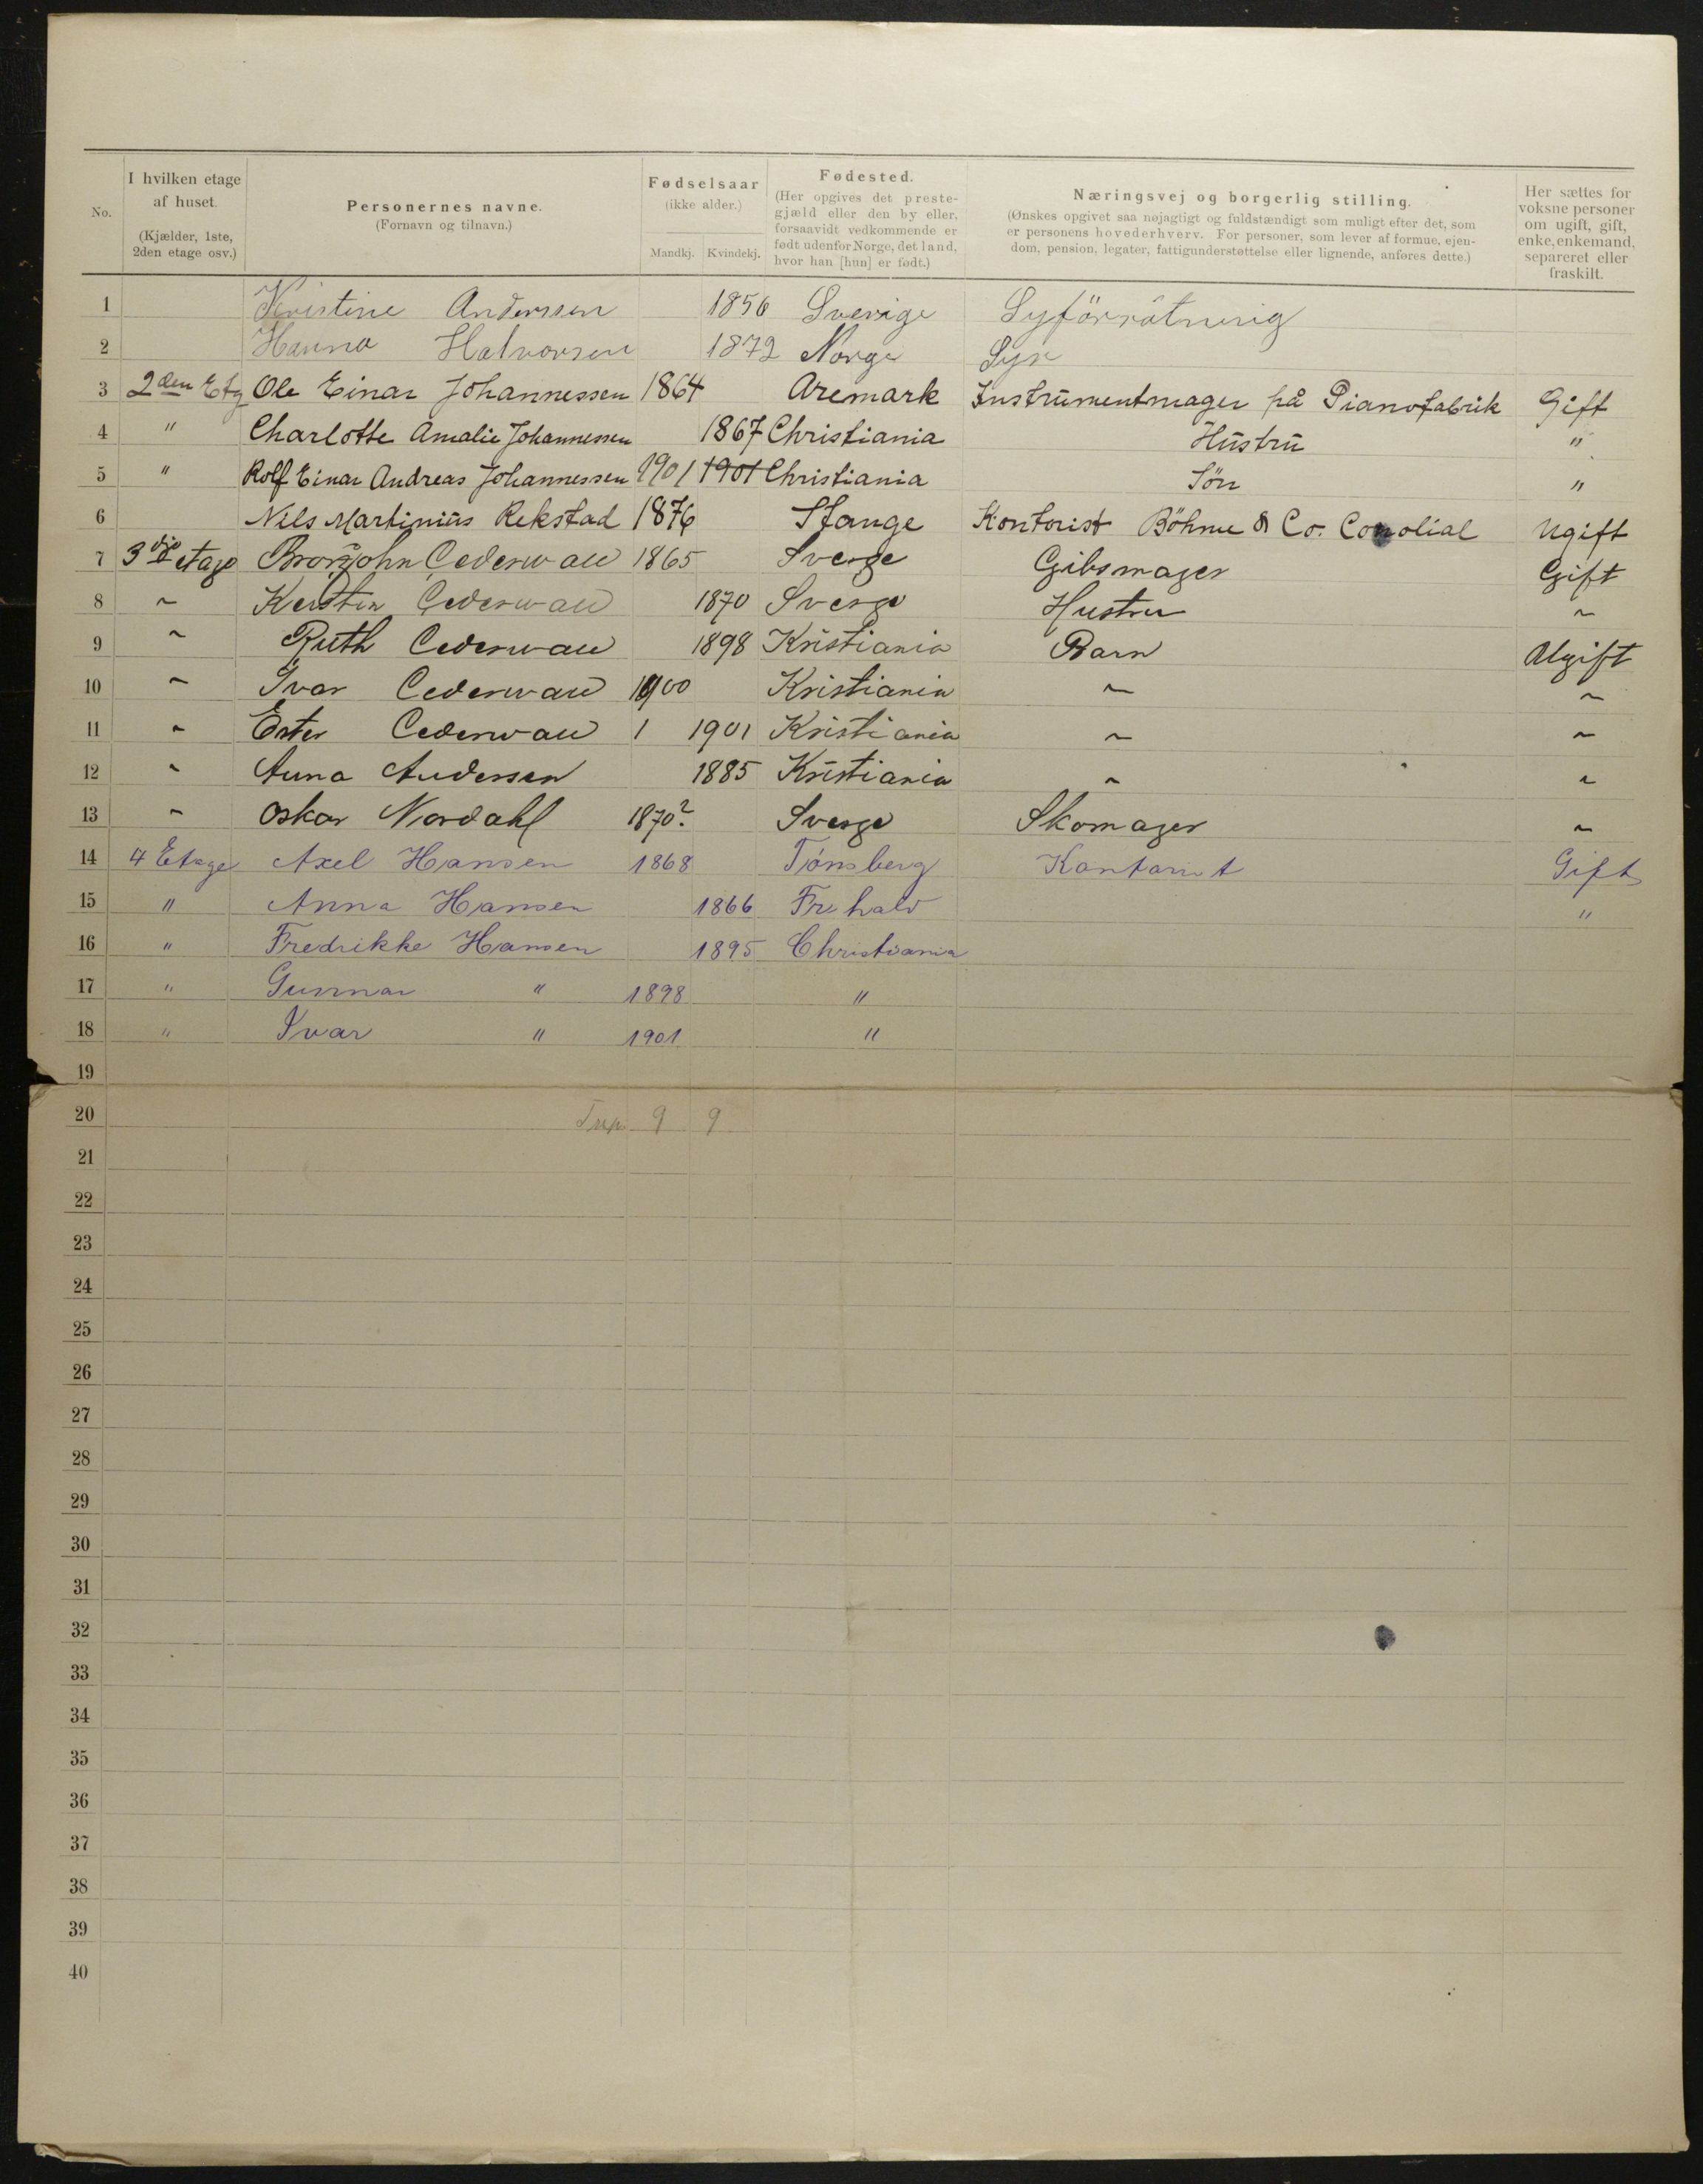 No. | I hvilken etage af huset. (Kjælder, 1ste, 2den etage osv.) | Personernes navne. (Fornavn og tilnavn.) | Fødselsaar (ikke alder.) Mandkj. Kvindekj. | Fødested. (Her opgives det prestegjæld eller den by eller, forsaavidt vedkommende er født udenfor Norge, det land, hvor han [hun] er født.) | Næringsvej og borgerlig stilling. (Ønskes opgivet saa nøjagtigt og fuldstændigt som muligt efter det, som er personens hovederhverv. For personer, som lever af formue, ejendom, pension, legater, fattigunderstøttelse eller lignende, anføres dette.) | Her sættes for voksne personer om ugift, gift, enke, enkemand, separeret eller fraskilt.
1 Kristine Anderssen 1856 Sverige Syförrätnerig
2 Hanna Halvorsen 1872 Norge
3 2den Etg Ole Einar Johannessen 1864 Aremark Instrumentmager på Pianofabrik Gift
4 " Charlotte Amalie Johannessen 1867 Christiania Hustru "
5 " Rolf Einar Andreas Johannessen 1901 1901 Christiania Sön "
6 Nils Martinius Rekstad 1876 Stange Kontorist Böhme & Co. Ugift
7 3die etage John Cederwall 1865 Sverge Gibsmager Gift
8 ~ Kersten Cederwall 1870 Sverge Hustru ~
9 ~ Ruth Cederwall 1898 Kristiania Barn Ugift
10 ~ Ivar Cederwall 1900 Kristiania ~ ~
11 ~ Ester Cederwall 1 1901 Kristiania ~ ~
12 ~ Anna Andersen 1885 Kristiania ~ ~
13 ~ Oskar Nordahl 1870? Sverge Skomager ~
14 4 Etage Axel Hansen 1868 Tønsberg Kontorist Gift
15 " Anna Hansen 1866 Fr.hald "
16 " Fredrikke Hansen 1895 Christiania
17 " Gunnar " 1898 "
18 " Ivar " 1901 "
19
20 9 9
21
22
23
24
25
26
27
28
29
30
31
32
33
34
35
36
37
38
39
40